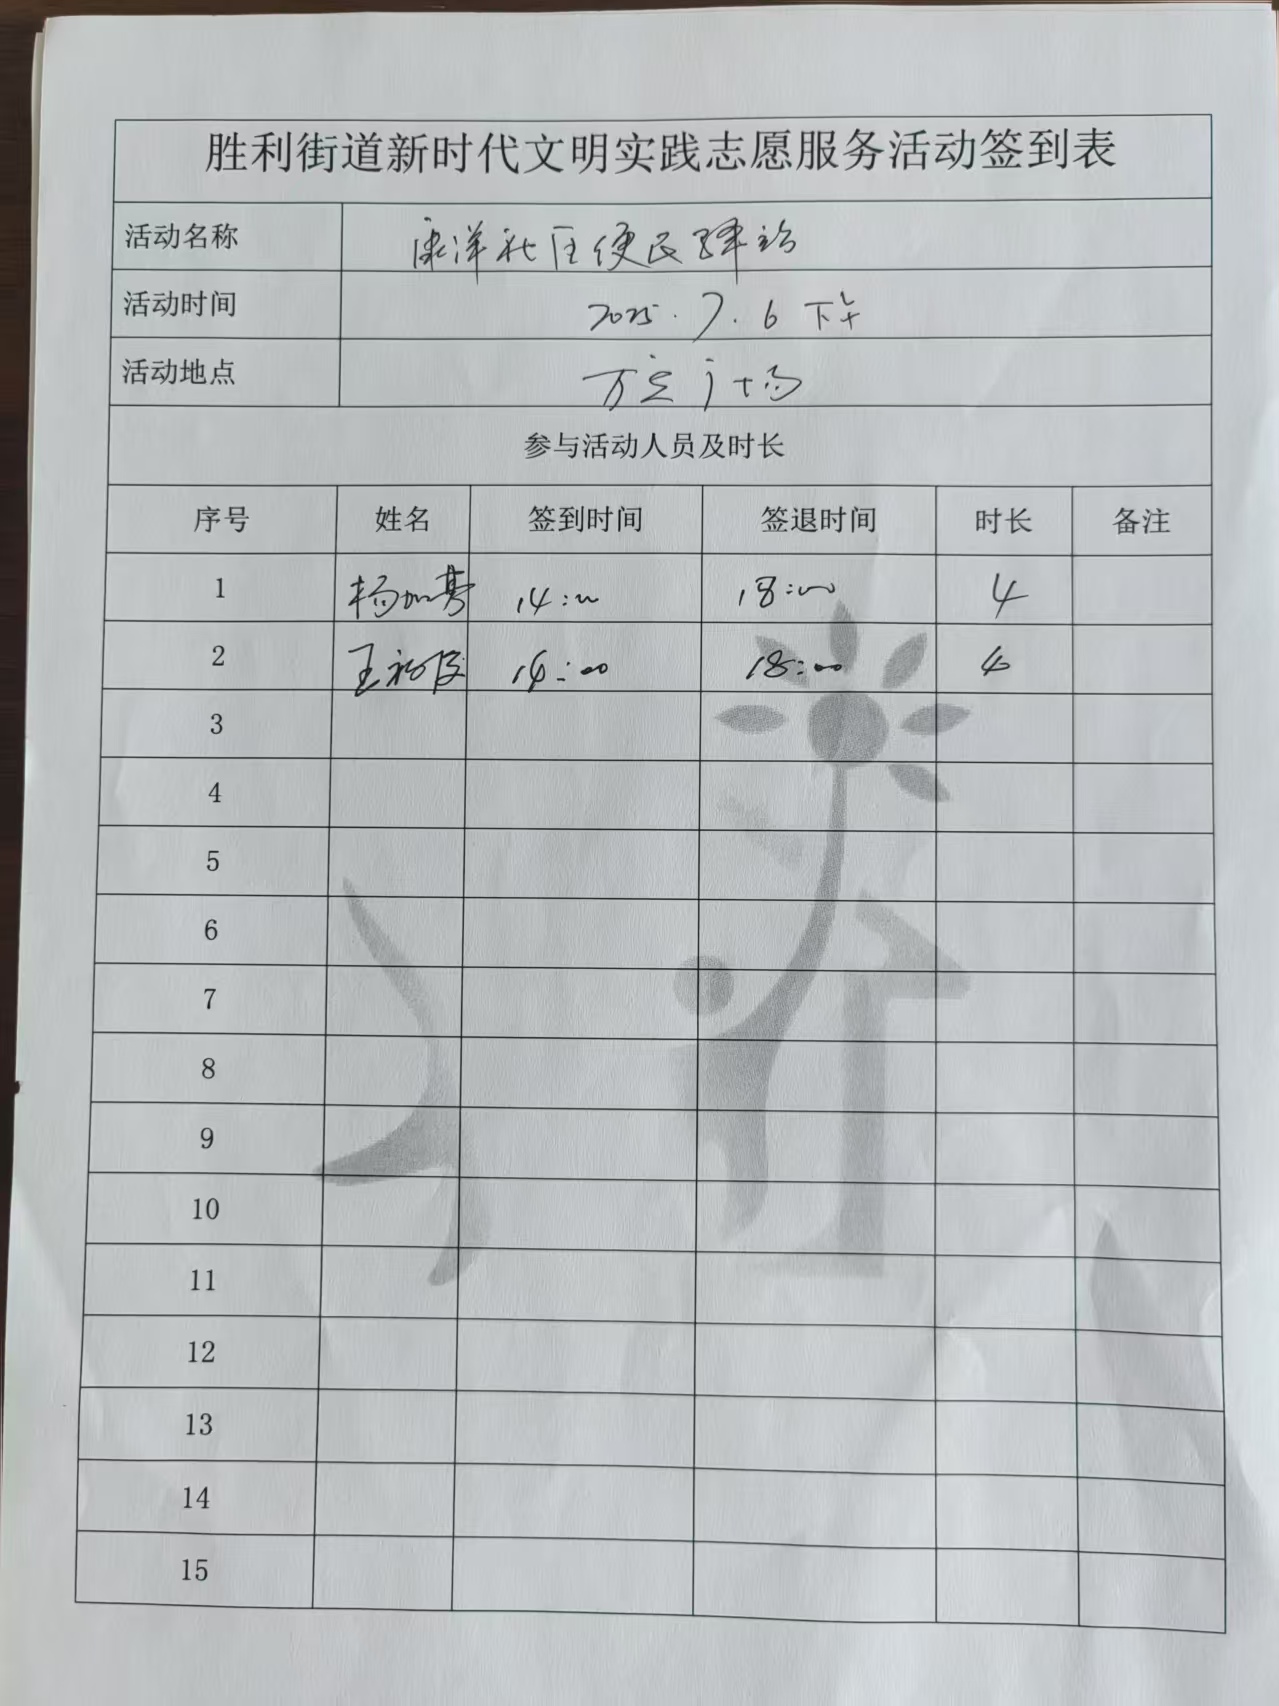 胜利街道新时代文明实践志愿服务活动签到表
活动名称 康洋社区便民驿站
活动时间 2025.7.6 下午
活动地点 万达广场
参与活动人员及时长
序号 姓名 签到时间 签退时间 时长 备注
1 14:00 18:00 4
2 14:00 18:00 4
3
4
5
6
7
8
9
10
11
12
13
14
15